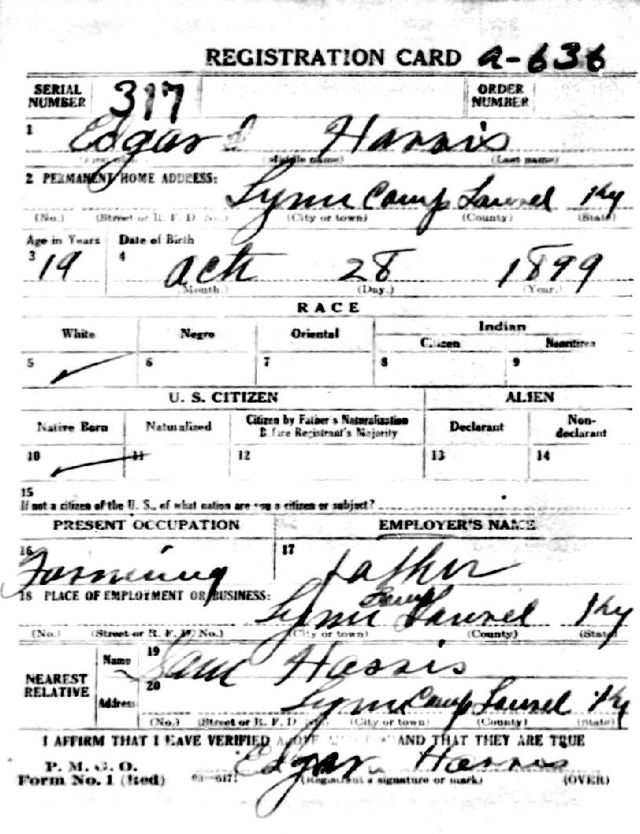 REGISTRATION CARD A-636
SERIAL NUMBER 317 ORDER NUMBER
1 Edgar Harris
(Middle name) (Last name)
2 PERMANENT HOME ADDRESS:
Lynn Camp Laurel Ky
(No.) (Street or R. F. D. No.) (City or town) (County) (State)
Age in Years Date of Birth
3 19 4 Oct 28 1899
(Month.) (Day.) (Year.)
RACE
White Negro Oriental Indian
Citizen Noncitizen
5 6 7 8 9
U. S. CITIZEN ALIEN
Native Born Naturalized Citizen by Father's Naturalization Before Registrant's Majority Declarant Non-declarant
10 11 12 13 14
15
If not a citizen of the U. S., of what nation are you a citizen or subject?
PRESENT OCCUPATION EMPLOYER'S NAME
16 Farming 17 Father
18 PLACE OF EMPLOYMENT OR BUSINESS:
Lynn Camp Laurel Ky
(No.) (Street or R. F. D. No.) (City or town) (County) (State)
NEAREST RELATIVE
Name 19 Sam Harris
Address 20 Lynn Camp Laurel Ky
(No.) (Street or R. F. D. No.) (City or town) (County) (State)
I AFFIRM THAT I HAVE VERIFIED ABOVE ANSWERS AND THAT THEY ARE TRUE
P. M. G. O.
Form No. 1 (Red) Edgar Harris
(Registrant's signature or mark) (OVER)